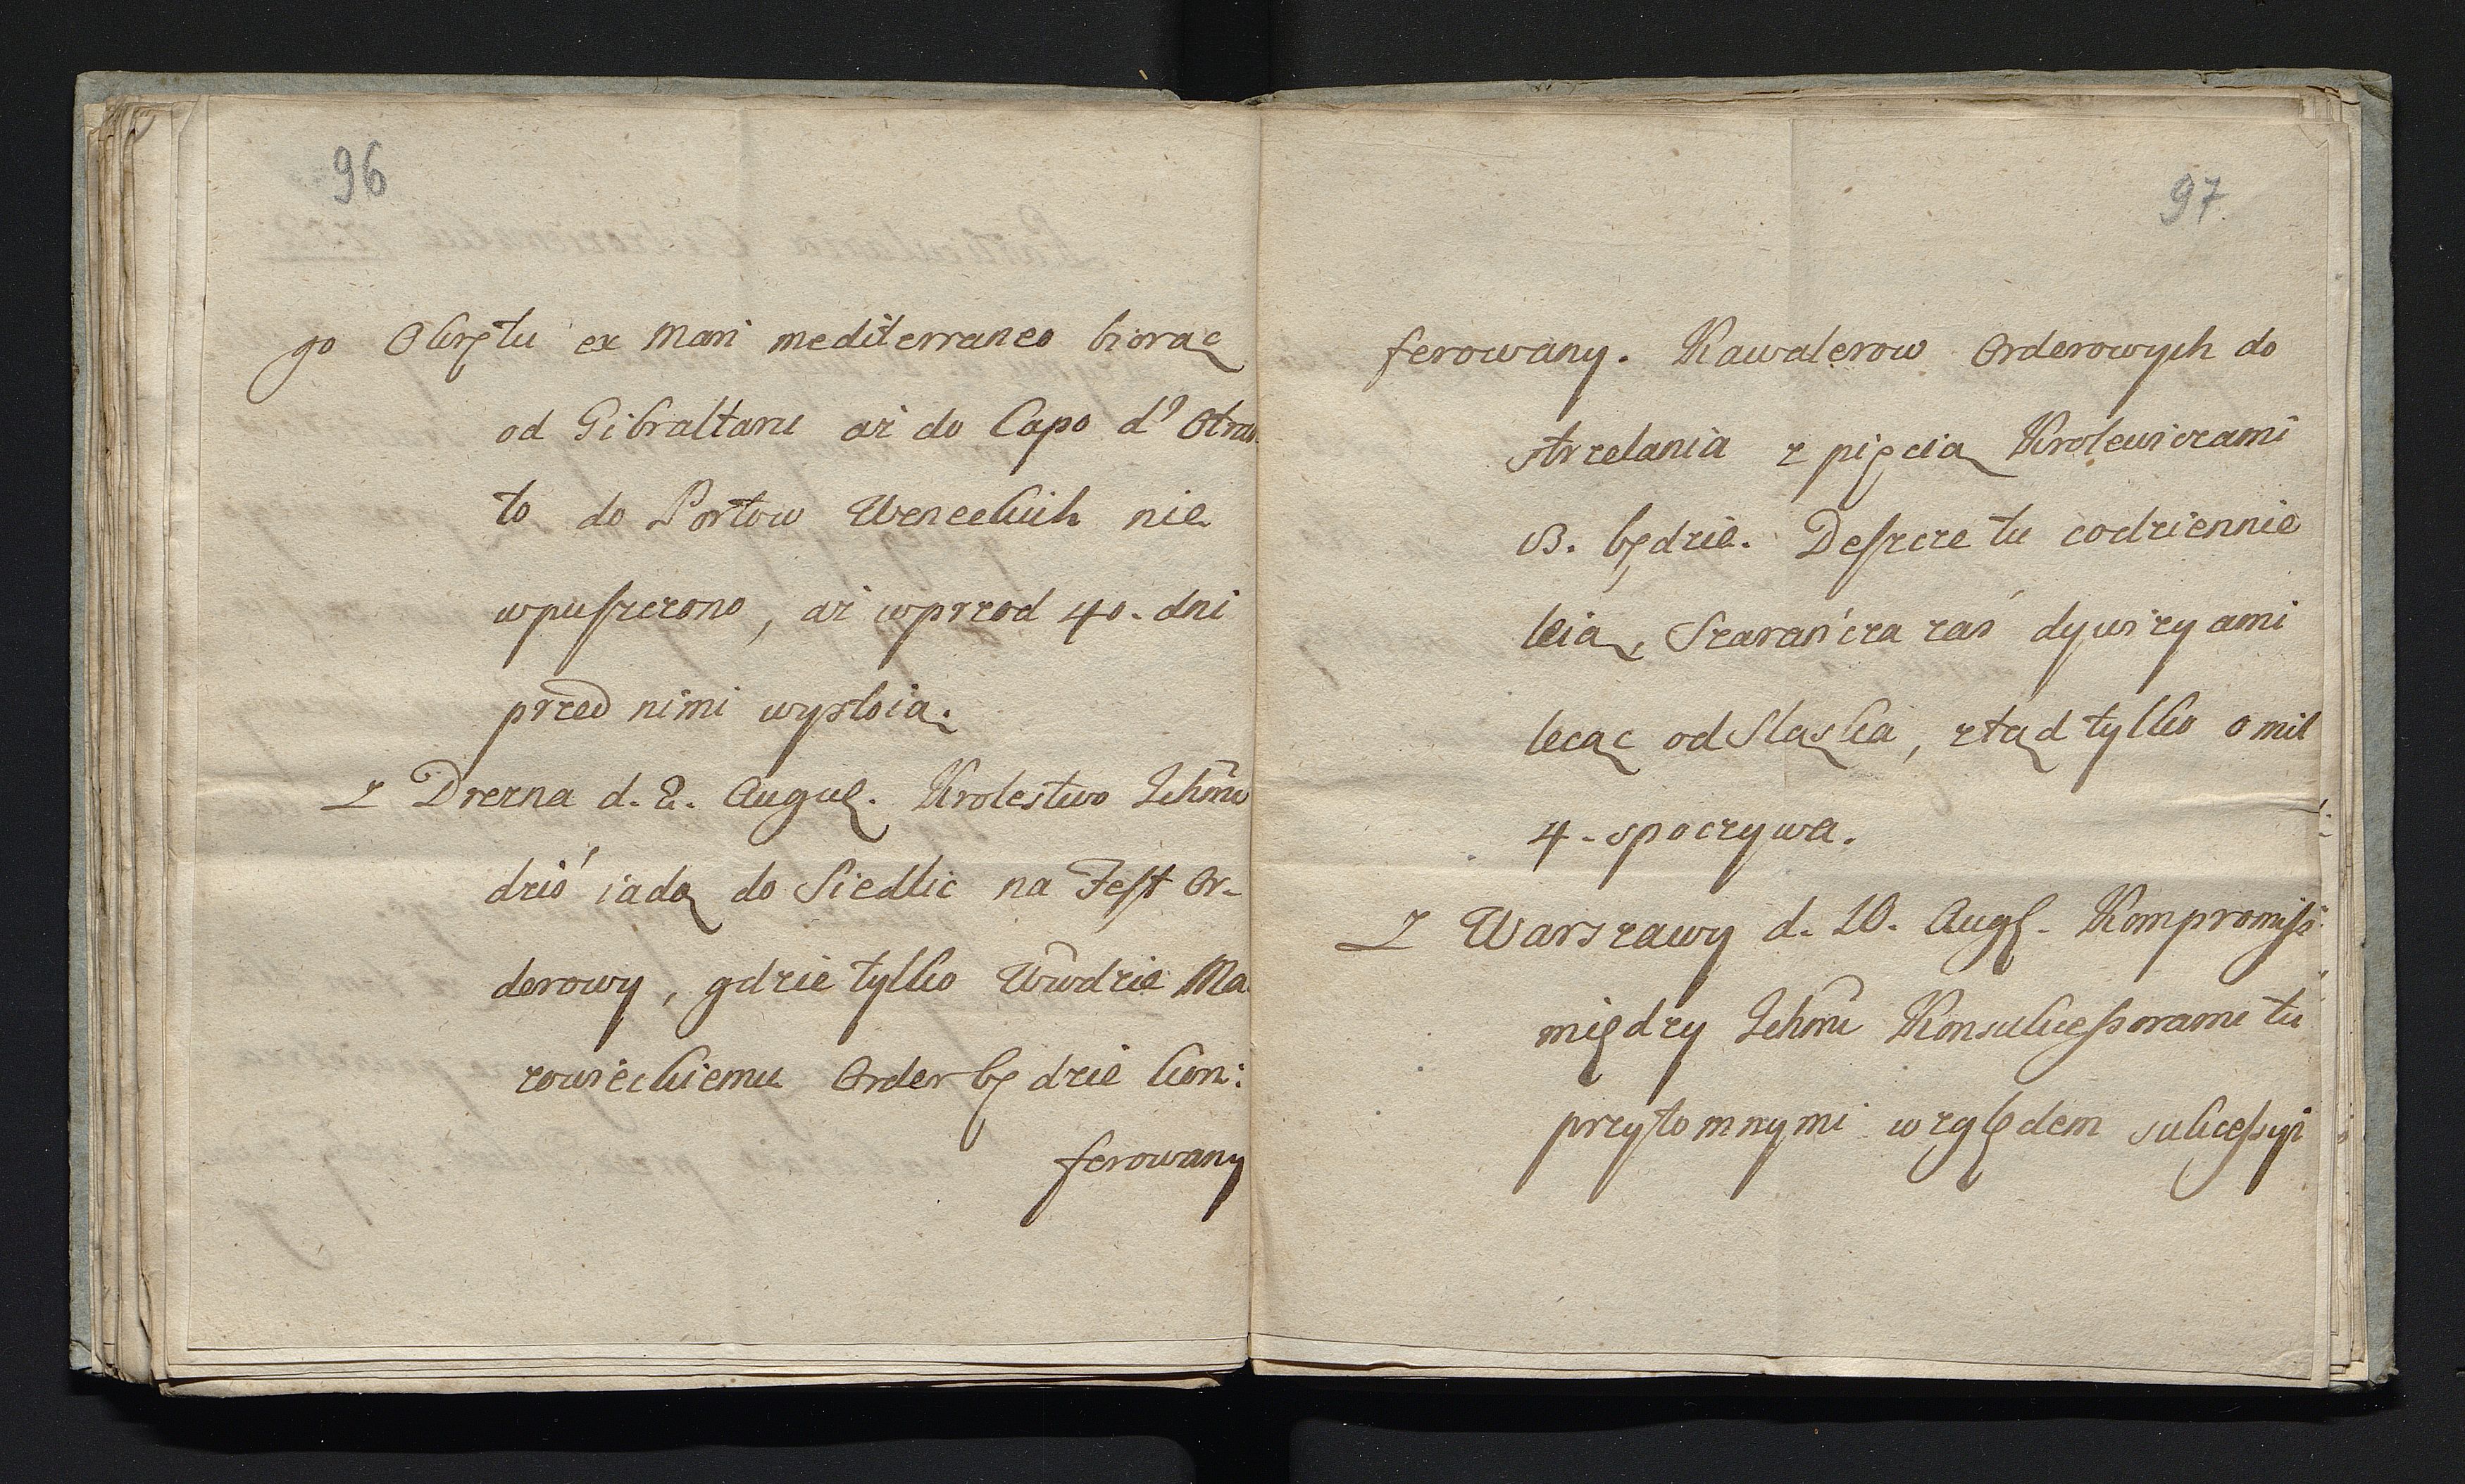 96
go Okrętu ex Mari mediterraneo biorąc
od Gibraltaru aż do Capo d'Otran
to do Portow Weneckich nie
wpuszczono, aż wprzod 40. dni
przed nimi wystoią.
z Drezna d. 2. Augus. Krolestwo Ichmć
dziś iadą do Siedlic na Fest Or-
derowy, gdzie tylko Wwdzie Ma
zowieckiemu Order będzie kon:
ferowany
97
ferowany. Kawalerow Orderowych do
strzelania z pięcią Krolewiczami
13. będzie. Deszcze tu codziennie
leią, Szarańcza zaś dywizyami
lecąc od Sląska, ztąd tylko o mil
4. spoczywa.
Z Warszawy d. 10. Augs. Kompromiss
między Ichmć Konsukcessorami tu
przytomnymi względem sukcessyi